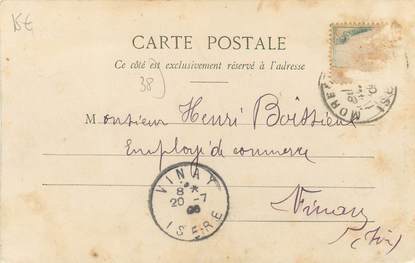 15€
CARTE POSTALE
Ce côté est exclusivement réservé à l'adresse
38)
MOREST
Monsieur Henri Boissieux
Employé de commerce
Vinay
(Isère)
VINAY
8 *
20 -7
06
ISERE